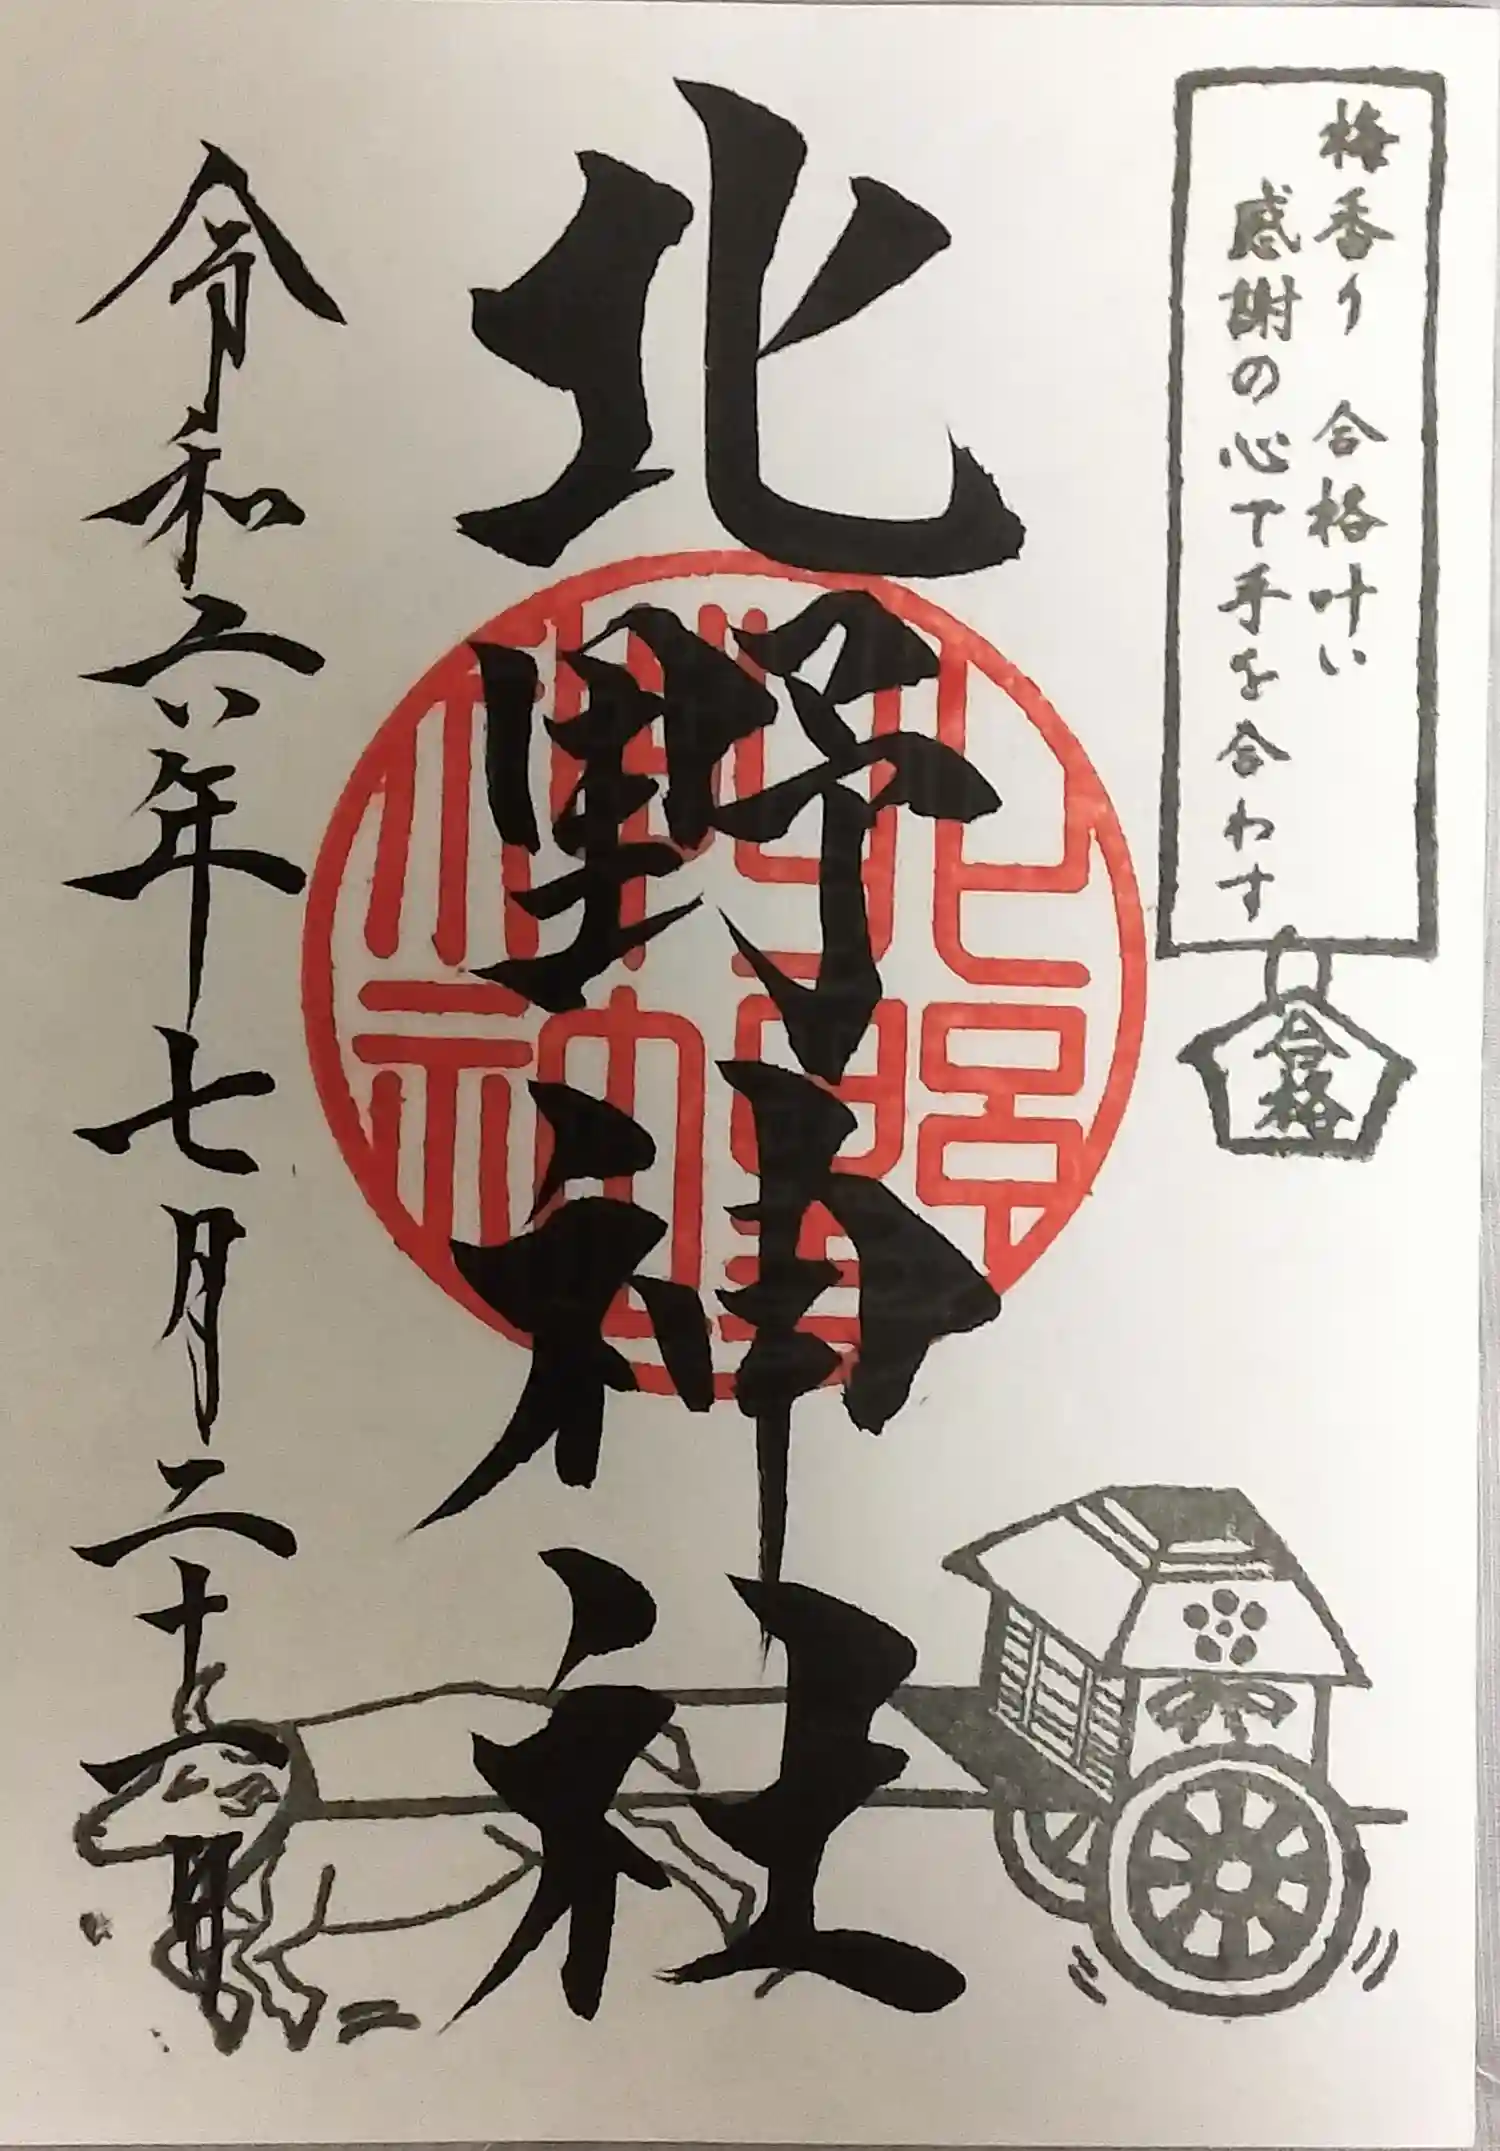 梅香り 合格叶い
感謝の心で手を合わす
合格
北野神社
令和六年七月二十二日